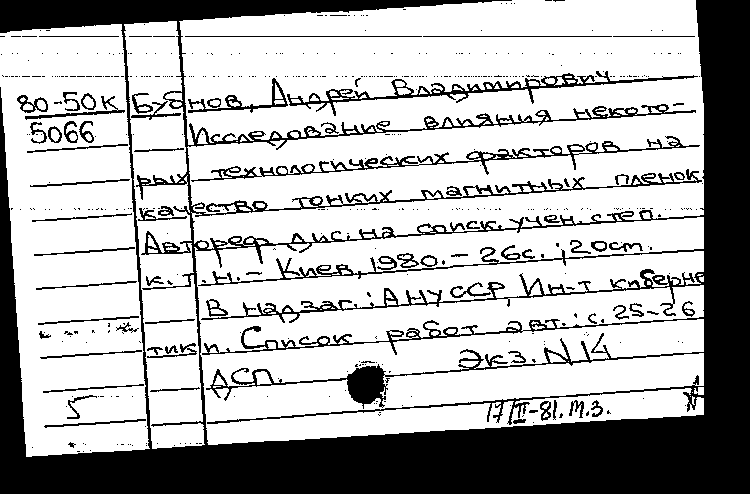 80-50к Бубнов, Андрей Владимирович
5066 Исследование влияния некото-
рых технологических факторов на
качество тонких магнитных пленок.
Автореф. дис. на соиск. учен. степ.
к. т. н. - Киев, 1980. - 26с.; 20см.
В надзаг.: АН УССР, Ин-т киберне
тики. Список работ авт.: с. 25-26
ДСП. Экз. N 14
5 17/II-81. М.З.